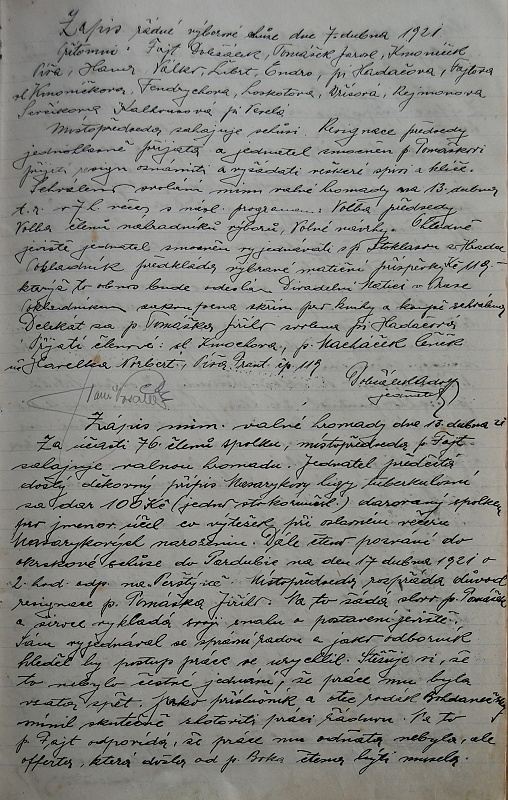 Zápis řádné výborové schůze dne 7. dubna 1921
Přítomni: Fajt Doležálek, Tomášek Jarosl., Kmoníček
Píša, Hanuš, Válko, Librt, Endro, pí Hadačová, Fajtova
sl Kmoníčkova, Fendrychova, Loskotova, Vrísová, Rejmonova
Serbikova Kalhousová pí Veselá
Místopředseda zahajuje schůzi. Resignace předsedy
jednohlasně přijata a jednatel zmocněn p. Tomáškovi
přijetí resign. oznámiti a vyžádati spisů a klíče.
Schváleno svolání mim. valné hromady na 13. dubna
t. r. v 7 h. večer s násl. programem: Volba předsedy
Volba členů náhradníků výborů, Volné návrhy. Ohledně
jeviště jednatel zmocněn vyjednávati s p.
Pokladník předkládá vybrané matiční příspěvky Kč 119.-
kterýž to obnos bude odeslán Divadelní Matici v Praze
Pokladníkem zakoupena skříň pro knihy a koupě schválena
Delegát za p. Tomáška Jiřího zvolena pí Hadačová
Přijatí členové: sl Kmochova, p. Macháček Čeněk
Havelka Norbert, Píša Frant. čp. 119
Doležálek
jednatel
Zápis mim. valné hromady dne 13. dubna 21
Za účasti 76 členů spolku, místopředseda p. Fajt
zahajuje valnou hromadu. Jednatel předčítá
došlý děkovný přípis Masarykovy ligy tuberkulosní
za dar 100 Kč (jedno stokorun) darovaný spolkem
pro jmenov. účel co výtěžek při oslavném večeru
Masarykových narozenin. Dále čteno pozvání do
okrskové schůze do Pardubic na den 17 dubna 1921 o
2 hod. odp. na Místopředseda rozpřádá důvod
resignace p. Tomáška Jiřího. Na to žádá slovo p. Tomášek
a široce vykládá svoji snahu o postavení jeviště.
Sám vyjednával se správní radou a jako odborník
hleděl by postup práce se urychlil. Stěžuje si, že
to nebylo čestné jednání, že práce mu byla
vzata zpět. Jako příslušník a otec rodiny
mínil skutečně zhotoviti práci řádnou. Na to
p. Fajt odpovídá, že práce mu odňata nebyla, ale
offerta, která došla od p. Boka čtena býti musela.